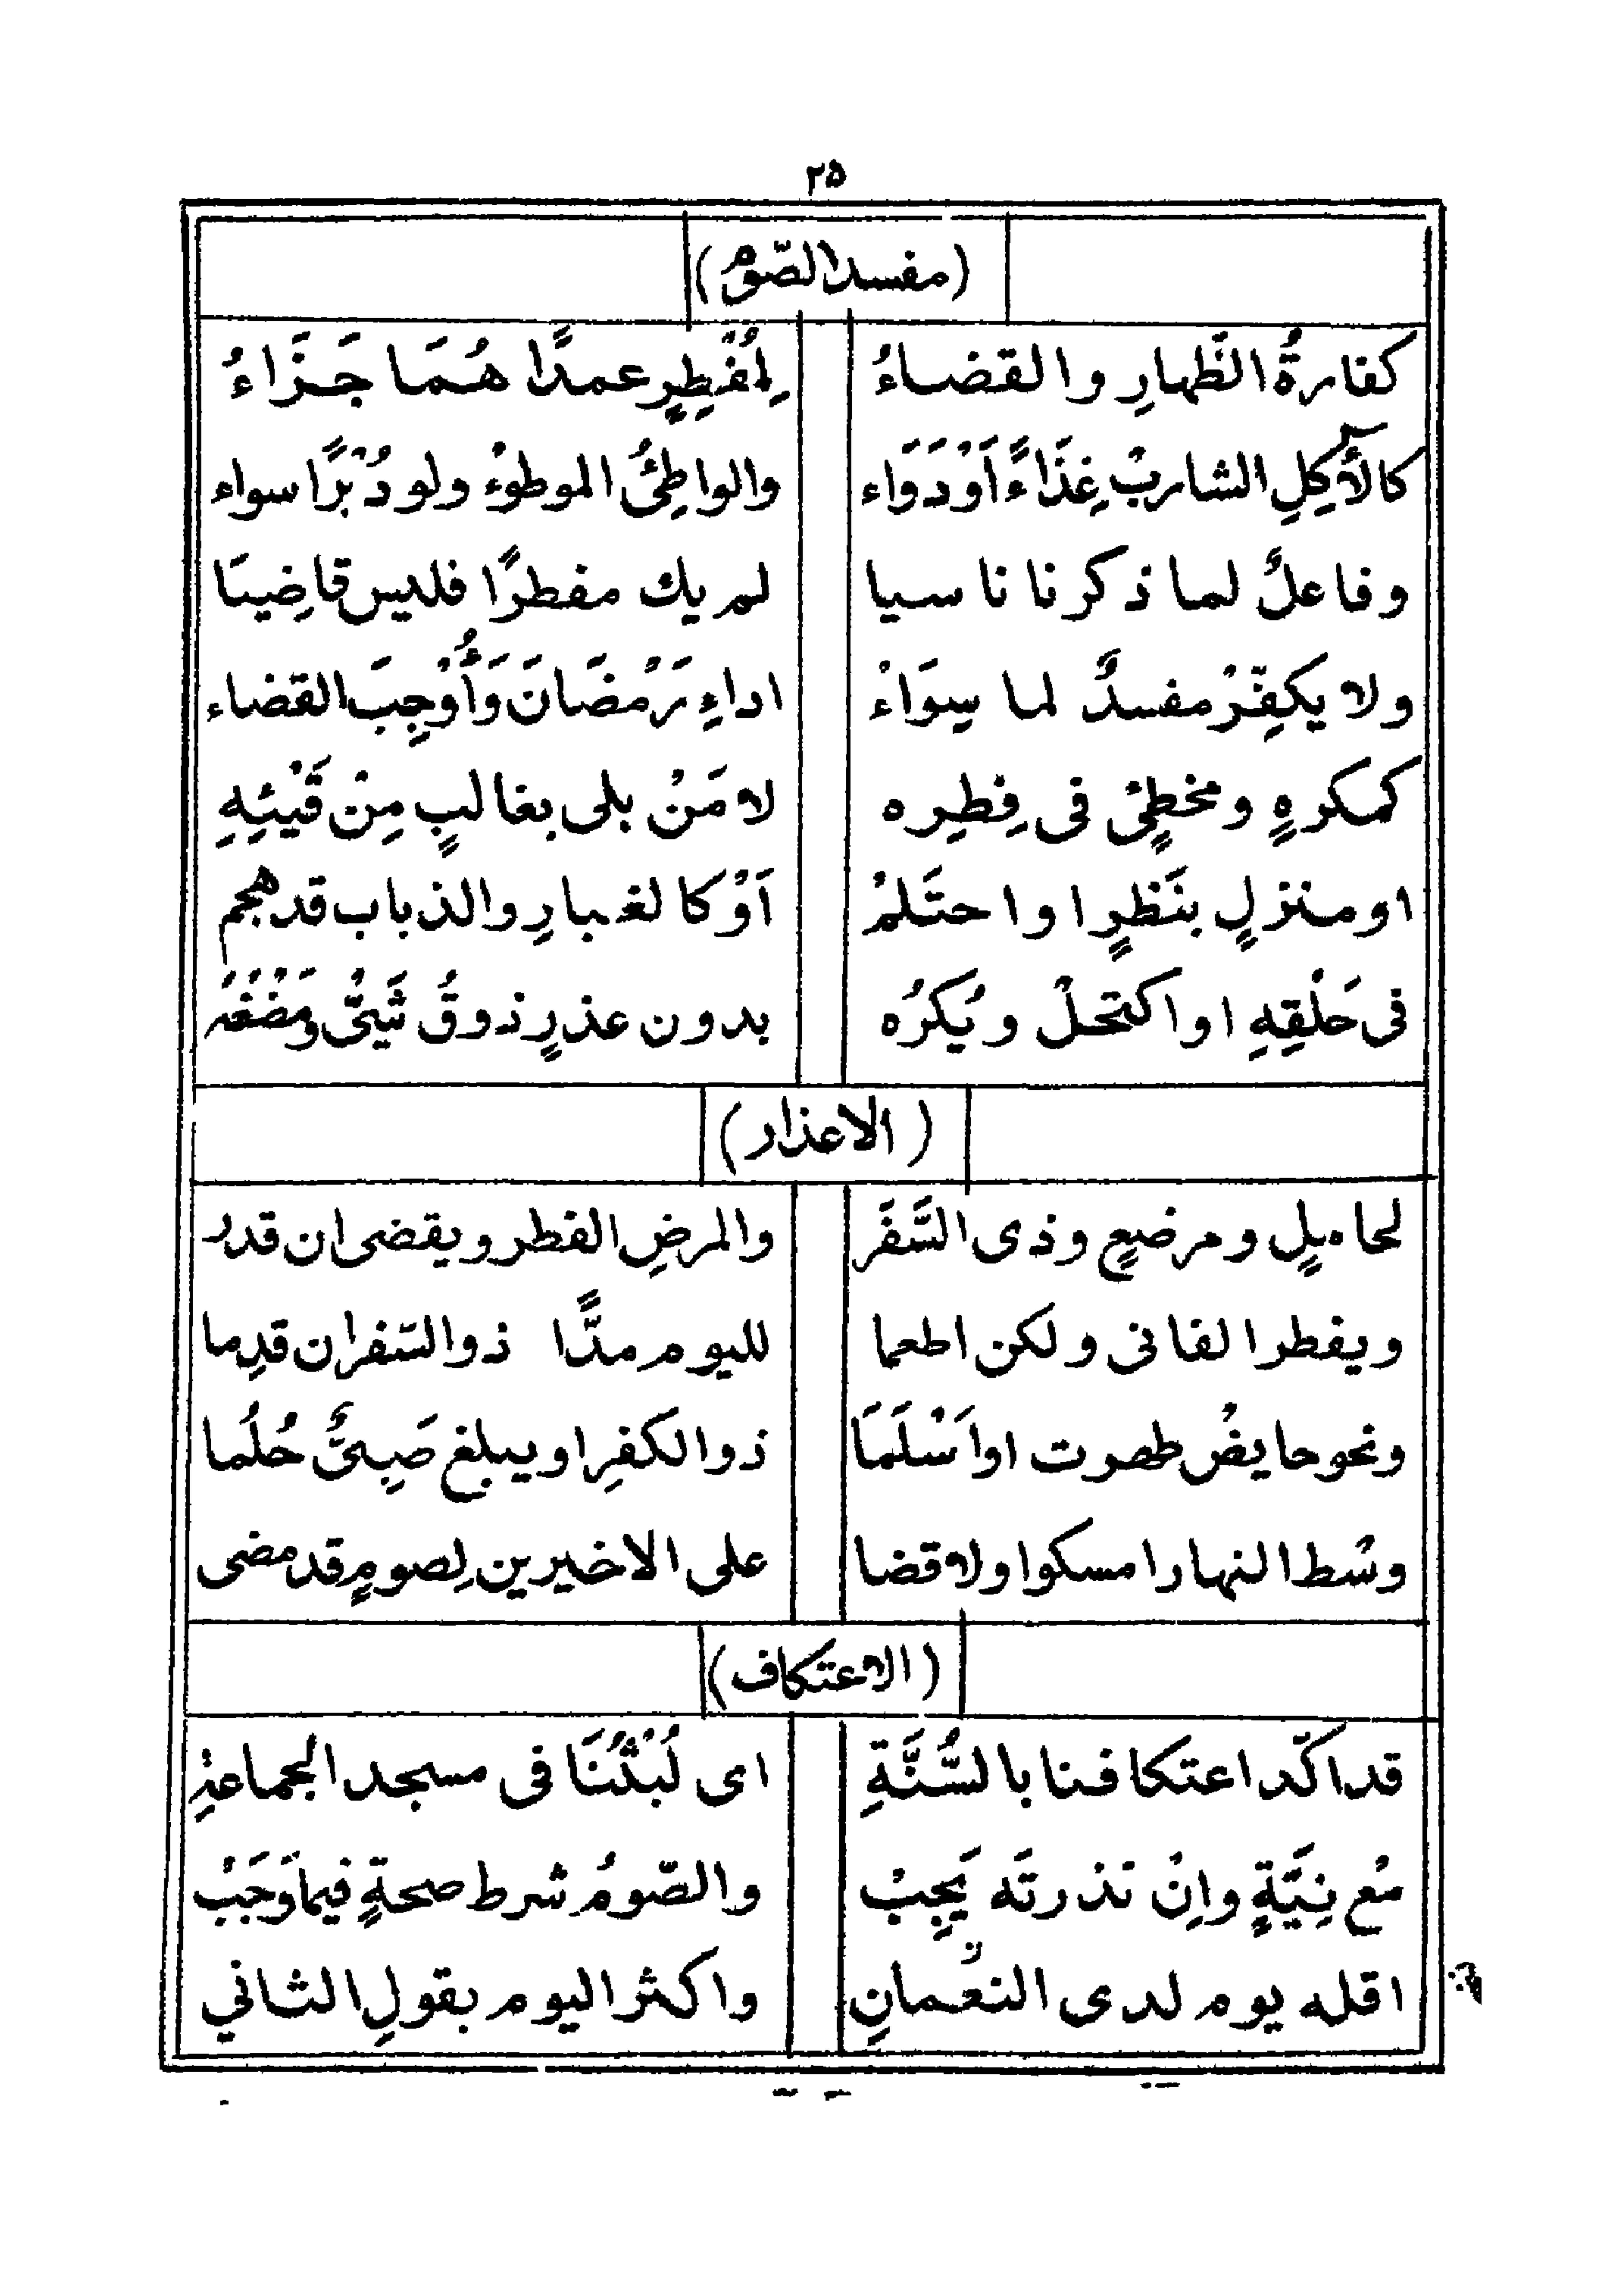 ٢٥
(مفسد الصّوم)
كفارةُ الظَّهارِ والقضاءُ لِمُفْطِرٍ عمدًا هُمَا جَزَاءُ
كالآكِلِ الشاربْ غِذَاءً اَوْدَوَاء والواطِئُ الموطوءْ ولو دُبْرًا سواء
وفاعلٌ لما ذكرنا ناسيا لم يك مفطرًا فليس قاضِيَا
ولا يكفِّرْ مفسدٌ لما سِوَاءْ اداءِ رَمْضَانَ وَأُوْجِبَ القضاء
كمكرهٍ ومخطِئٍ فى فِطِره لا مَنْ بلى بغالبٍ مِنْ قَيْئِهِ
او منزلٍ بنَظرٍ او احتَلمْ اَوْ كالغبارِ والذباب قد هجم
فى حَلْقِهِ او اكتحلْ ويُكرُه بدون عذرٍ ذوقُ شَيْئٍ ومَضْغُهُ
(الاعذار)
لحاملٍ ومرضعٍ وذى السَّفَر والمرضِ الفطر ويقضى ان قدر
ويفطر الفانى ولكن اطعما لليوم مدًّا ذو السّفر ان قدِما
ونحو حايضْ طهرت او اَسْلَمَا ذو الكفرِ او يبلغ صَبِىٌّ حُلُما
وسْط النهار امسكوا ولا قضا على الاخيرين لِصومٍ قد مضى
(الاعتكاف)
قد اكّد اعتكافنا بالسُّنَّةِ اى لُبْثُنَا فى مسجد الجماعةِ
مْع نِيَّةٍ وإنْ نذرتَه يَجِبْ والصّومُ شرط صحةٍ فيما وَجَبْ
اقله يوم لدى النعْمانِ واكثر اليوم بقولِ الثاني